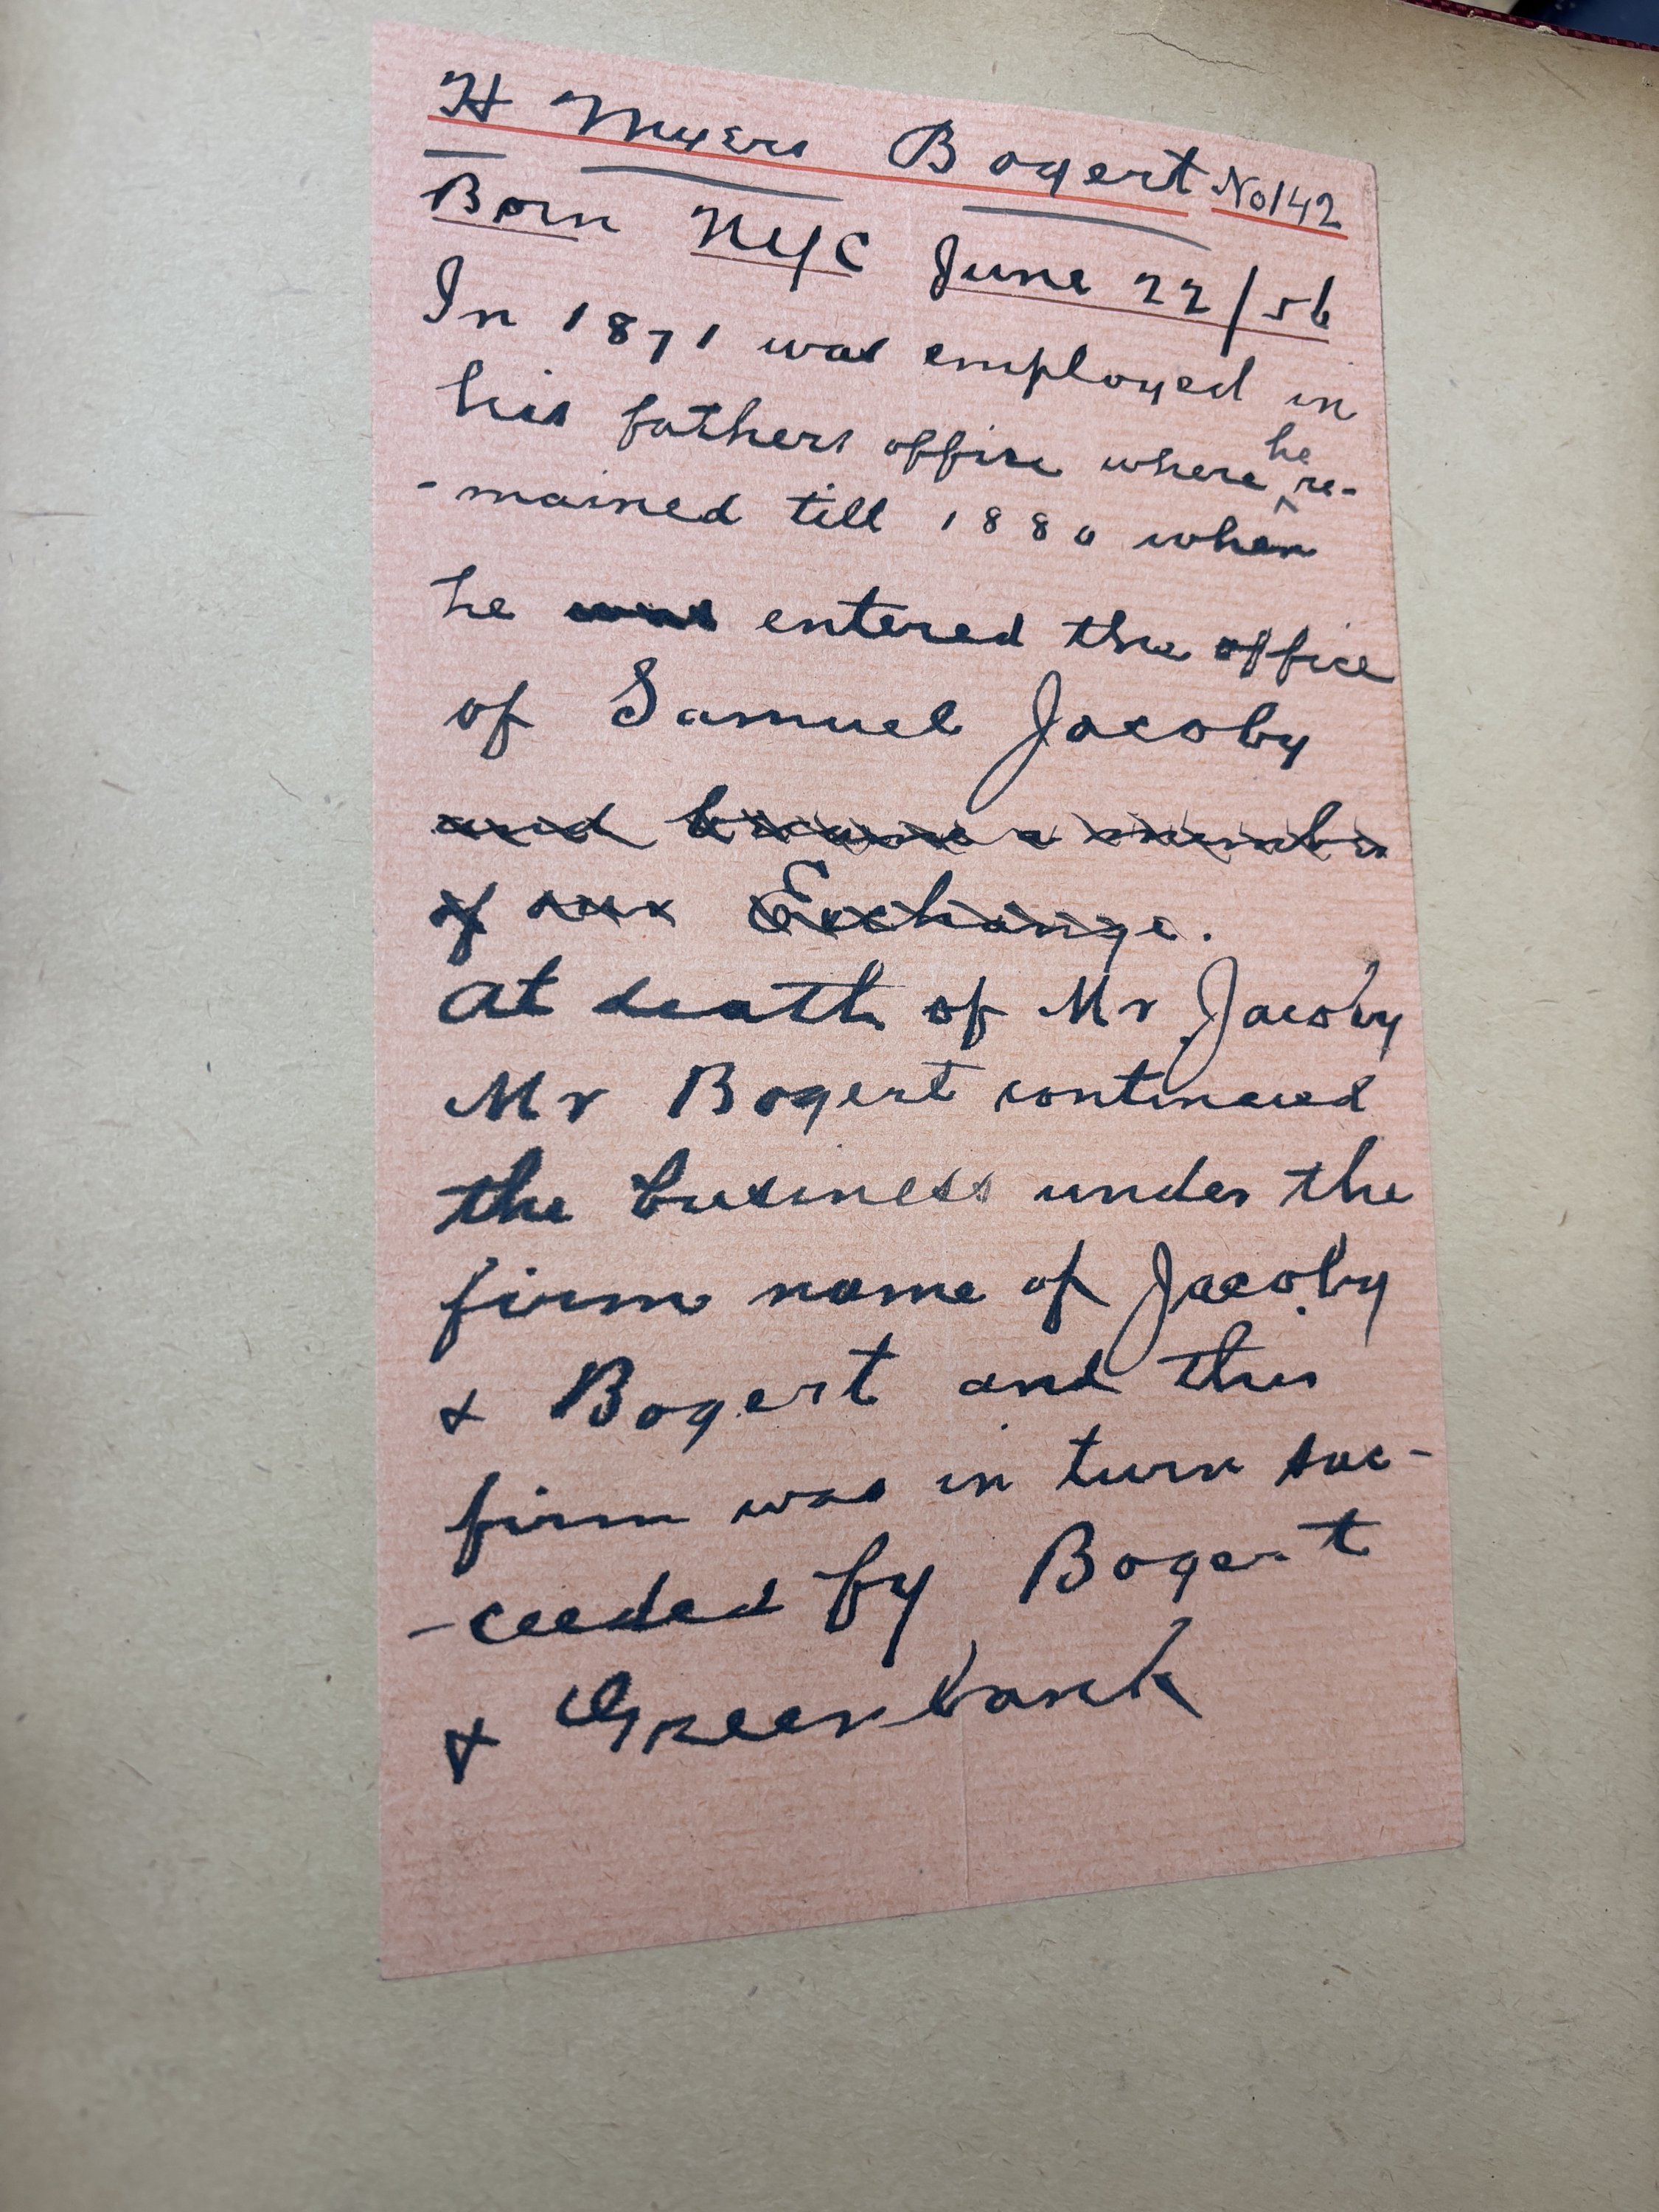 H Myers Bogert No 142
Born NYC June 22/56
In 1871 was employed in
his fathers office where he re-
-mained till 1880 when
he was entered the office
of Samuel Jacoby
and became a member
of our Exchange.
At death of Mr Jacoby
Mr Bogert continued
the business under the
firm name of Jacoby
& Bogert and this
firm was in turn suc-
-ceeded by Bogert
& Greenbank